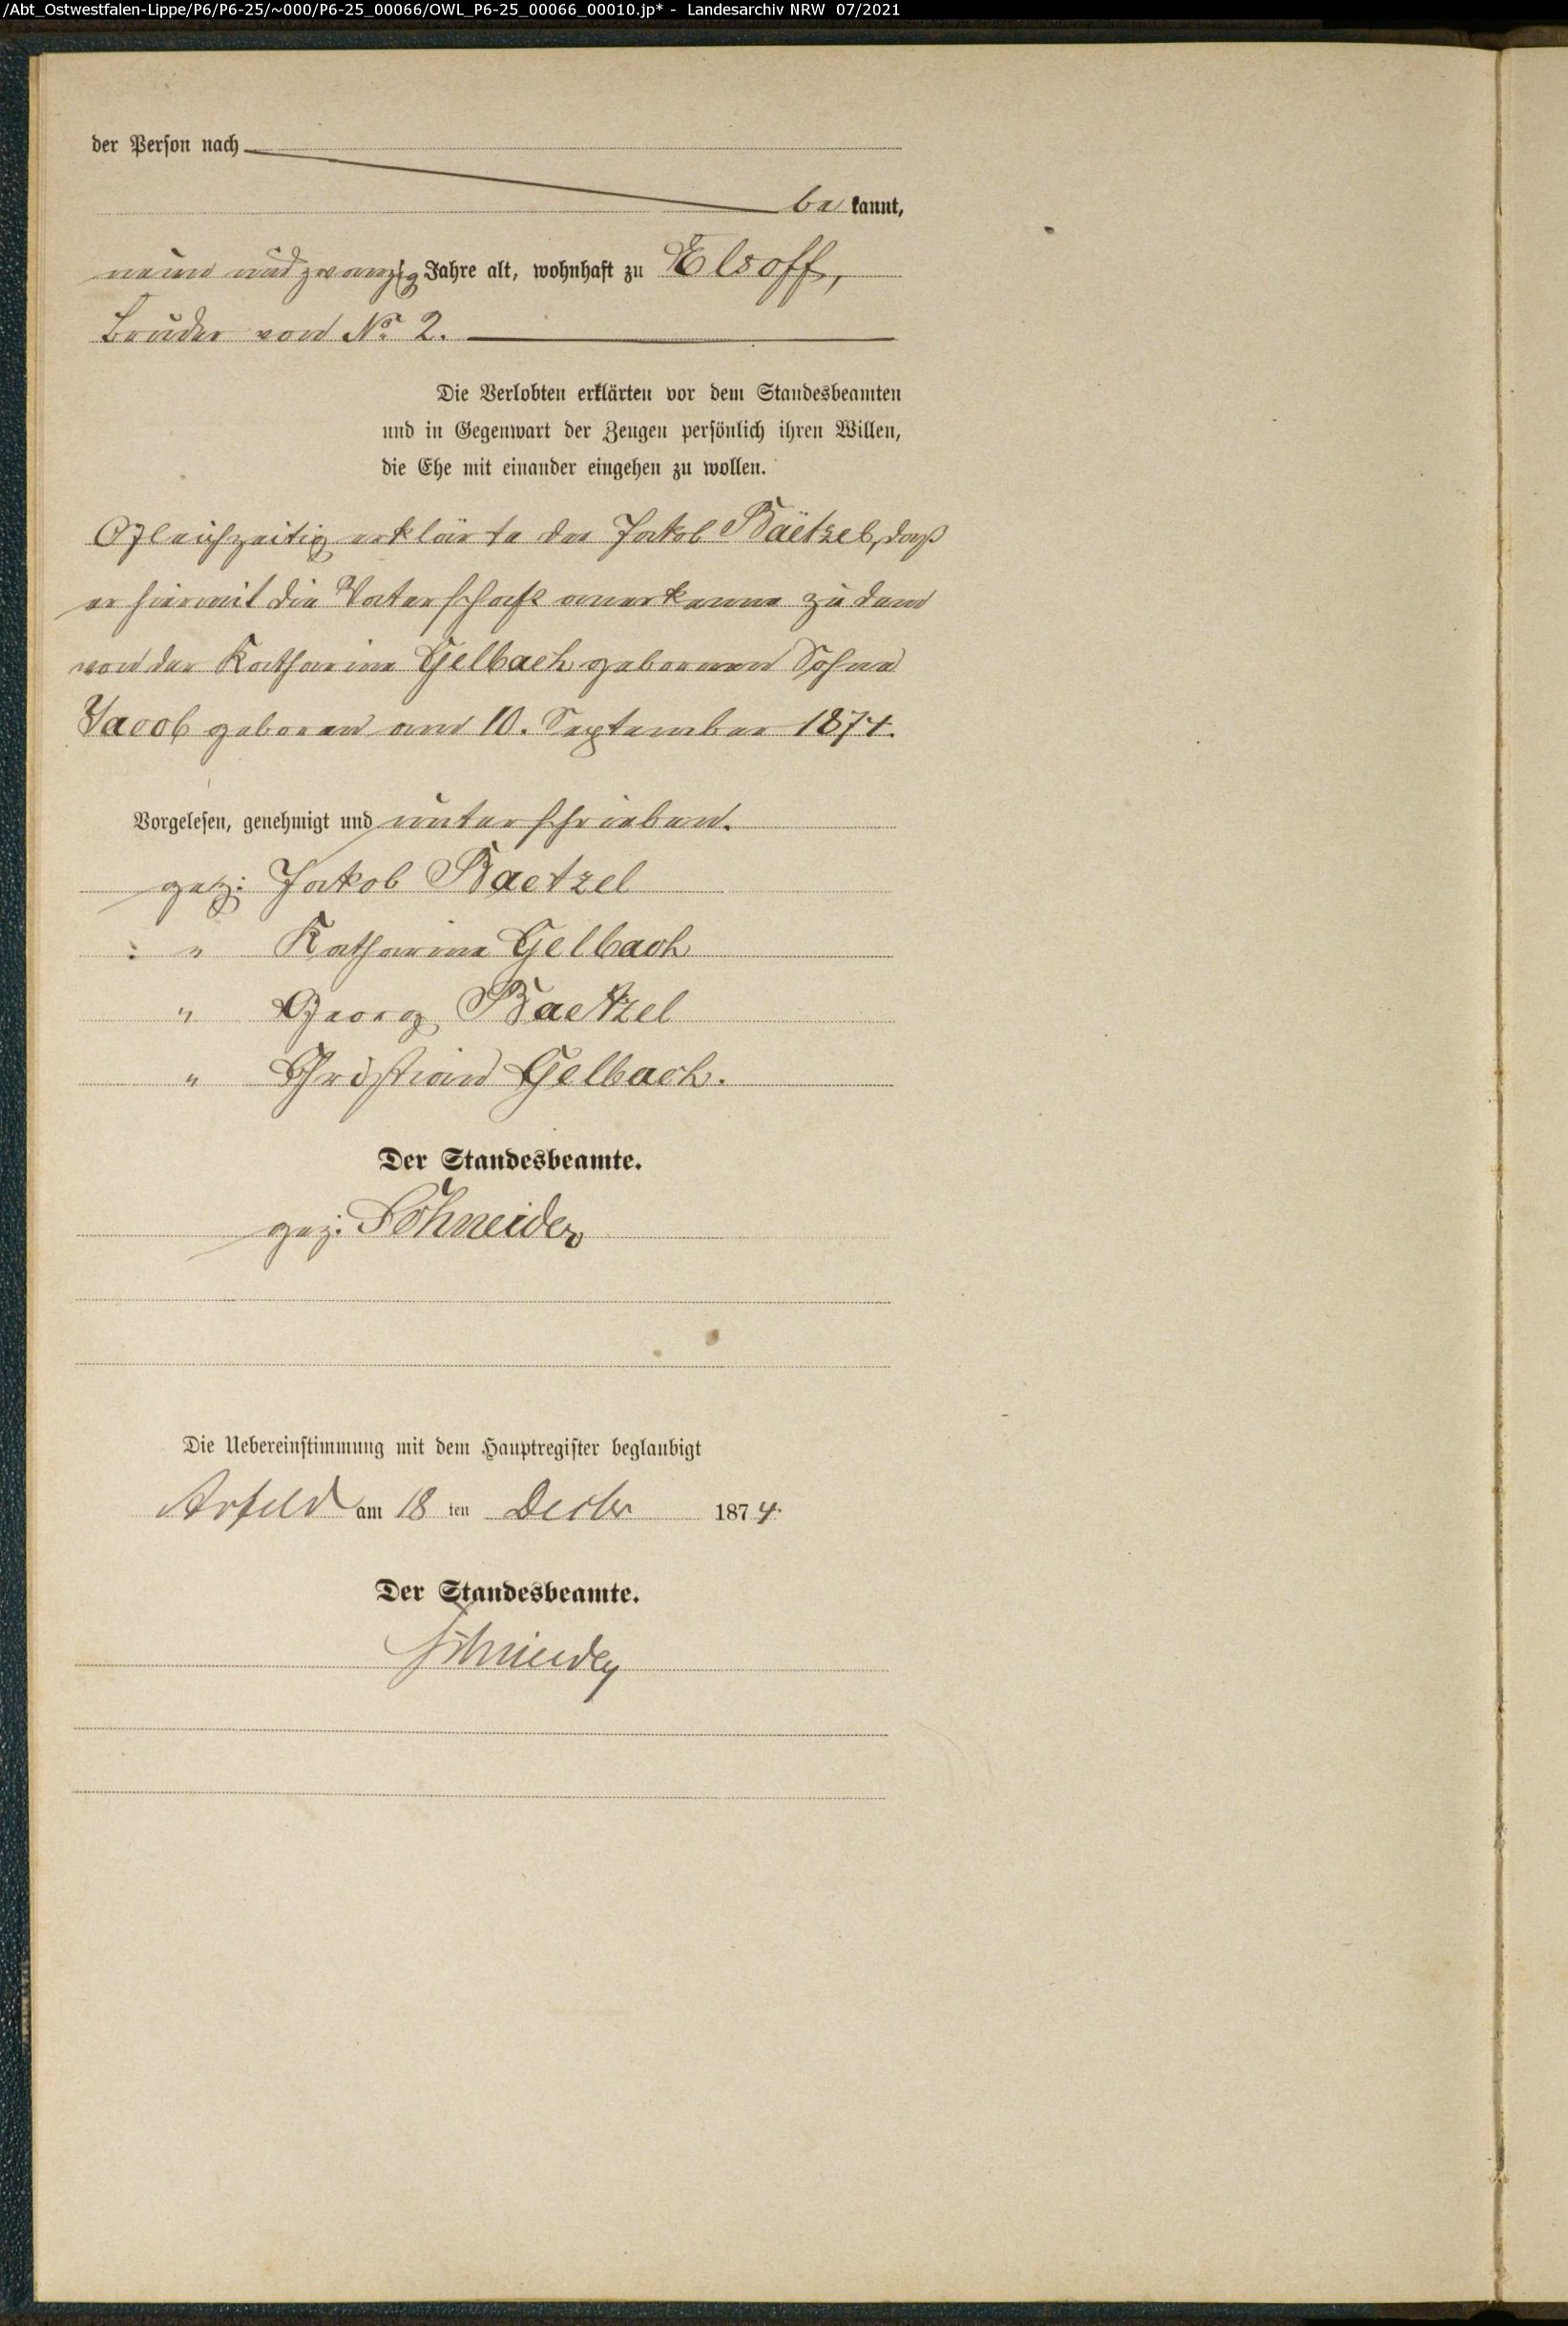 /Abt_Ostwestfalen-Lippe/P6/P6-25/~000/P6-25_00066/OWL_P6-25_00066_00010.jp* - Landesarchiv NRW 07/2021
der Person nach
be kannt,
neun und zwanzig Jahre alt, wohnhaft zu Elsoff,
Bruder von No. 2.
Die Verlobten erklärten vor dem Standesbeamten
und in Gegenwart der Zeugen persönlich ihren Willen,
die Ehe mit einander eingehen zu wollen.
Gleichzeitig erklärte der Jakob Baëtzel, daß
er hiermit die Vaterschaft anerkenne zu dem
von der Katharine Gelbach gebornen Sohne
Jacob geboren am 10. September 1874.
Vorgelesen, genehmigt und unterschrieben.
gez: Jakob Baetzel
" Katharine Gelbach
" Georg Baetzel
" Christian Gelbach.
Der Standesbeamte.
gez: Schneider
Die Uebereinstimmung mit dem Hauptregister beglaubigt
Arfeld am 18 ten Decbr 1874.
Der Standesbeamte.
Schneider